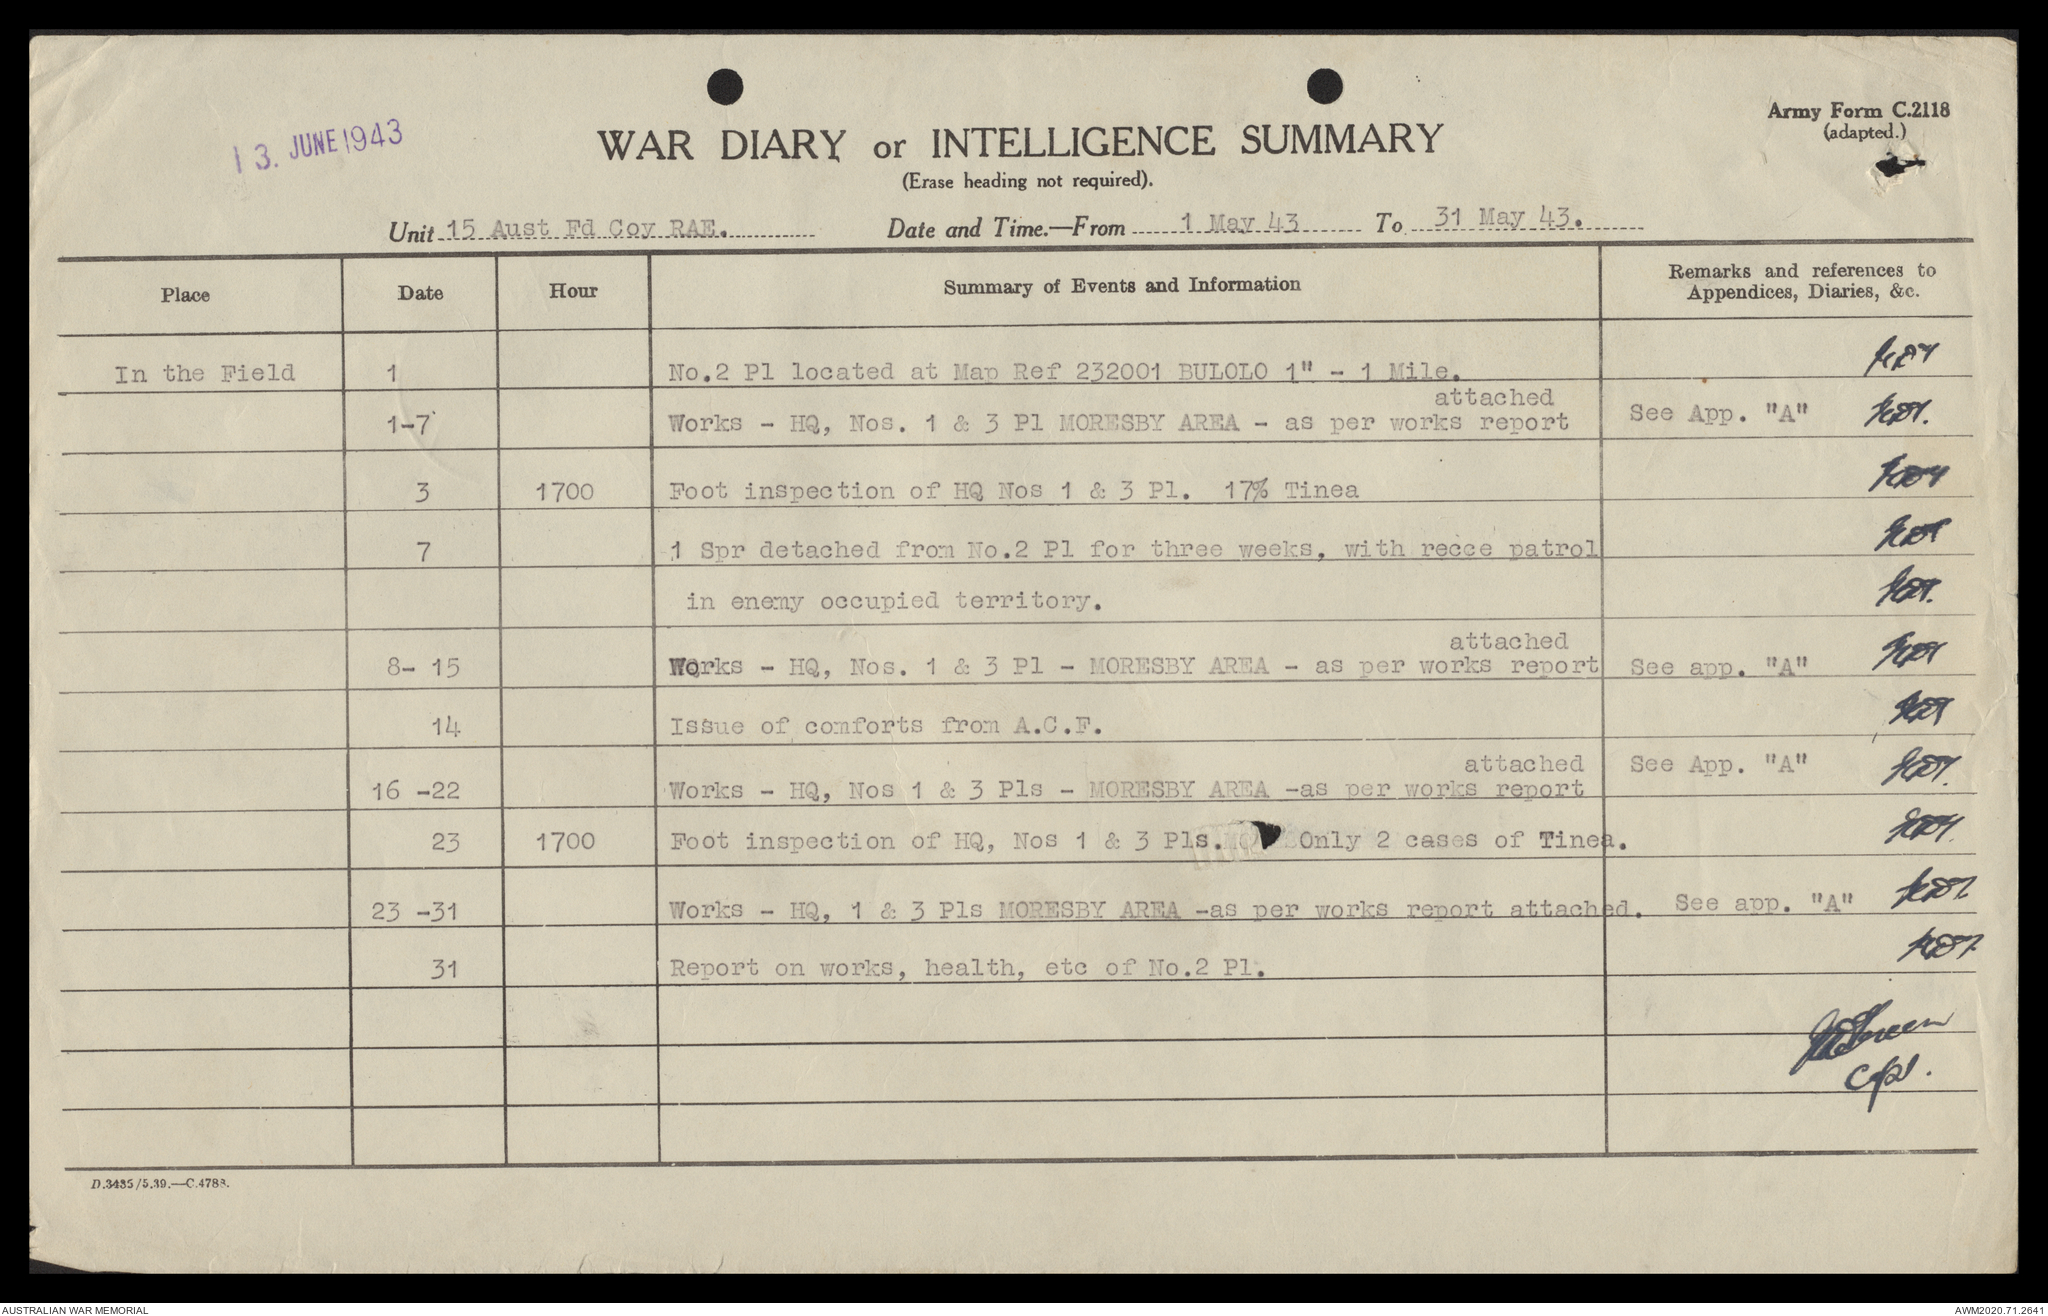 13. JUNE 1943
Army Form C.2118
(adapted.)
WAR DIARY or INTELLIGENCE SUMMARY
(Erase heading not required).
Unit 15 Aust Fd Coy RAE. Date and Time.—From 1 May 43 To 31 May 43.
Place Date Hour Summary of Events and Information Remarks and references to
Appendices, Diaries, &c.
In the Field 1 No.2 Pl located at Map Ref 232001 BULOLO 1" - 1 Mile.
attached
1-7 Works - HQ, Nos. 1 & 3 Pl MORESBY AREA - as per works report See App. "A"
3 1700 Foot inspection of HQ Nos 1 & 3 Pl. 17% Tinea
7 1 Spr detached from No.2 Pl for three weeks, with recce patrol
in enemy occupied territory.
attached
8- 15 Works - HQ, Nos. 1 & 3 Pl - MORESBY AREA - as per works report See app. "A"
14 Issue of comforts from A.C.F.
attached See App. "A"
16 -22 Works - HQ, Nos 1 & 3 Pls - MORESBY AREA -as per works report
23 1700 Foot inspection of HQ, Nos 1 & 3 Pls. Only 2 cases of Tinea.
23 -31 Works - HQ, 1 & 3 Pls MORESBY AREA -as per works report attached. See app. "A"
31 Report on works, health, etc of No.2 Pl.
Capt.
D.3435/5.39.—C.4788.
AUSTRALIAN WAR MEMORIAL AWM2020.71.2641